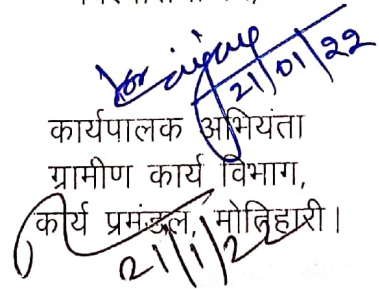 21/01/22
कार्यपालक अभियंता
ग्रामीण कार्य विभाग,
कार्य प्रमंडल, मोतिहारी।
21/1/22